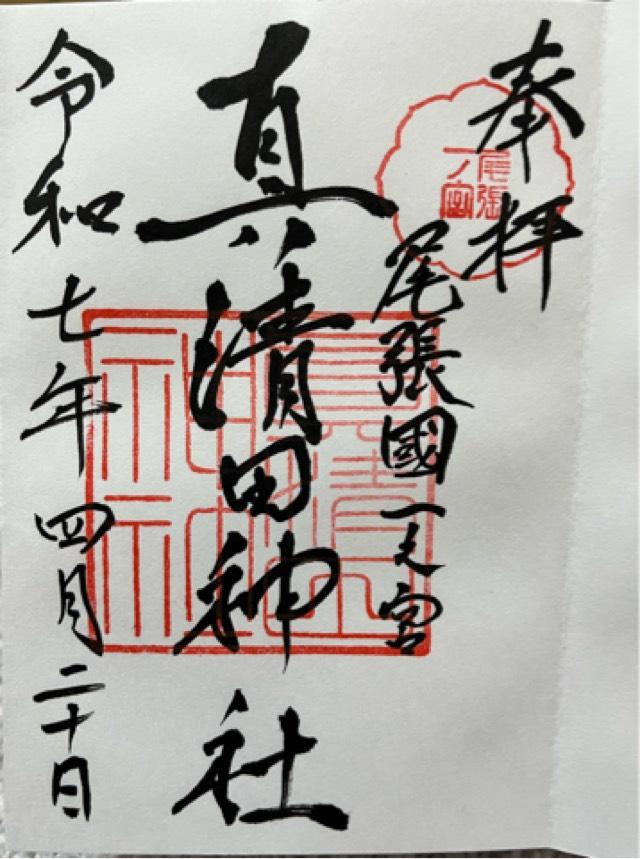 奉拝
尾張國一之宮
真清田神社
令和七年四月二十日
尾張
一ノ宮